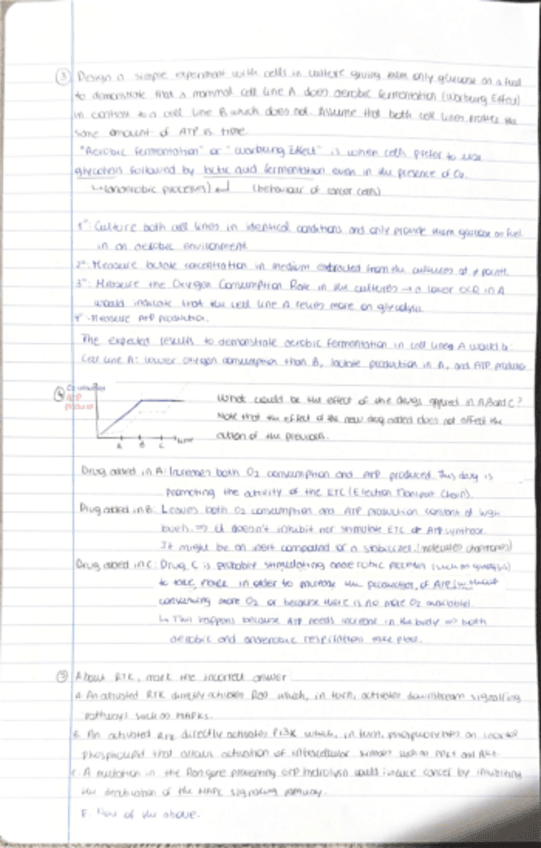 ③ Design a simple experiment with cells in culture giving them only glucose as a fuel
to demonstrate that a mammal cell line A does aerobic fermentation (Warburg Effect)
in contrast to a cell line B which does not. Assume that both cell lines produce the
same amount of ATP in time.
"Aerobic fermentation" or "Warburg Effect" is when cells prefer to use
glycolysis followed by lactic acid fermentation even in the presence of O2.
(anaerobic processes) (behaviour of cancer cells)
1º Culture both cell lines in identical conditions and only provide them glucose as fuel
in an aerobic environment.
2º Measure lactate concentration in medium extracted from the cultures at
3º Measure the Oxygen Consumption Rate in the cultures → a lower OCR in A
would indicate that the cell line A relies more on glycolysis.
Measure ATP production.
The expected results to demonstrate aerobic fermentation in cell line A would be
Cell line A: lower oxygen consumption than B, lactate production in A, and ATP
④ O2
ATP
A B C time
What would be the effect of the drugs added in A, B and C?
Note that the effect of the new drug added does not affect the
action of the previous.
Drug added in A: Increases both O2 consumption and ATP produced. This drug is
promoting the activity of the ETC (Electron Transport Chain).
Drug added in B: Leaves both O2 consumption and ATP production constant
⇒ it doesn't inhibit nor stimulate ETC or ATP synthase.
It might be an inert compound or a stabilizer. (molecular chaperones)
Drug added in C: Drug C is probably stimulating anaerobic processes (such as glycolysis)
to take place in order to increase the production of ATP without
consuming more O2 or because there is no more O2 available.
↳ This happens because ATP needs increase in the body ⇒ both
aerobic and anaerobic respiration take place.
⑤ About RTK, mark the incorrect answer
a. An activated RTK directly activates Ras which, in turn, activates downstream signalling
pathways such as MAPKs.
b. An activated RTK directly activates PI3K which, in turn, phosphorylates an inositol
phospholipid that allows activation of intracellular such as and Akt.
c. A mutation in the Ras gene preventing GTP hydrolysis would induce cancer by inhibiting
the deactivation of the MAPK signalling pathway.
None of the above.